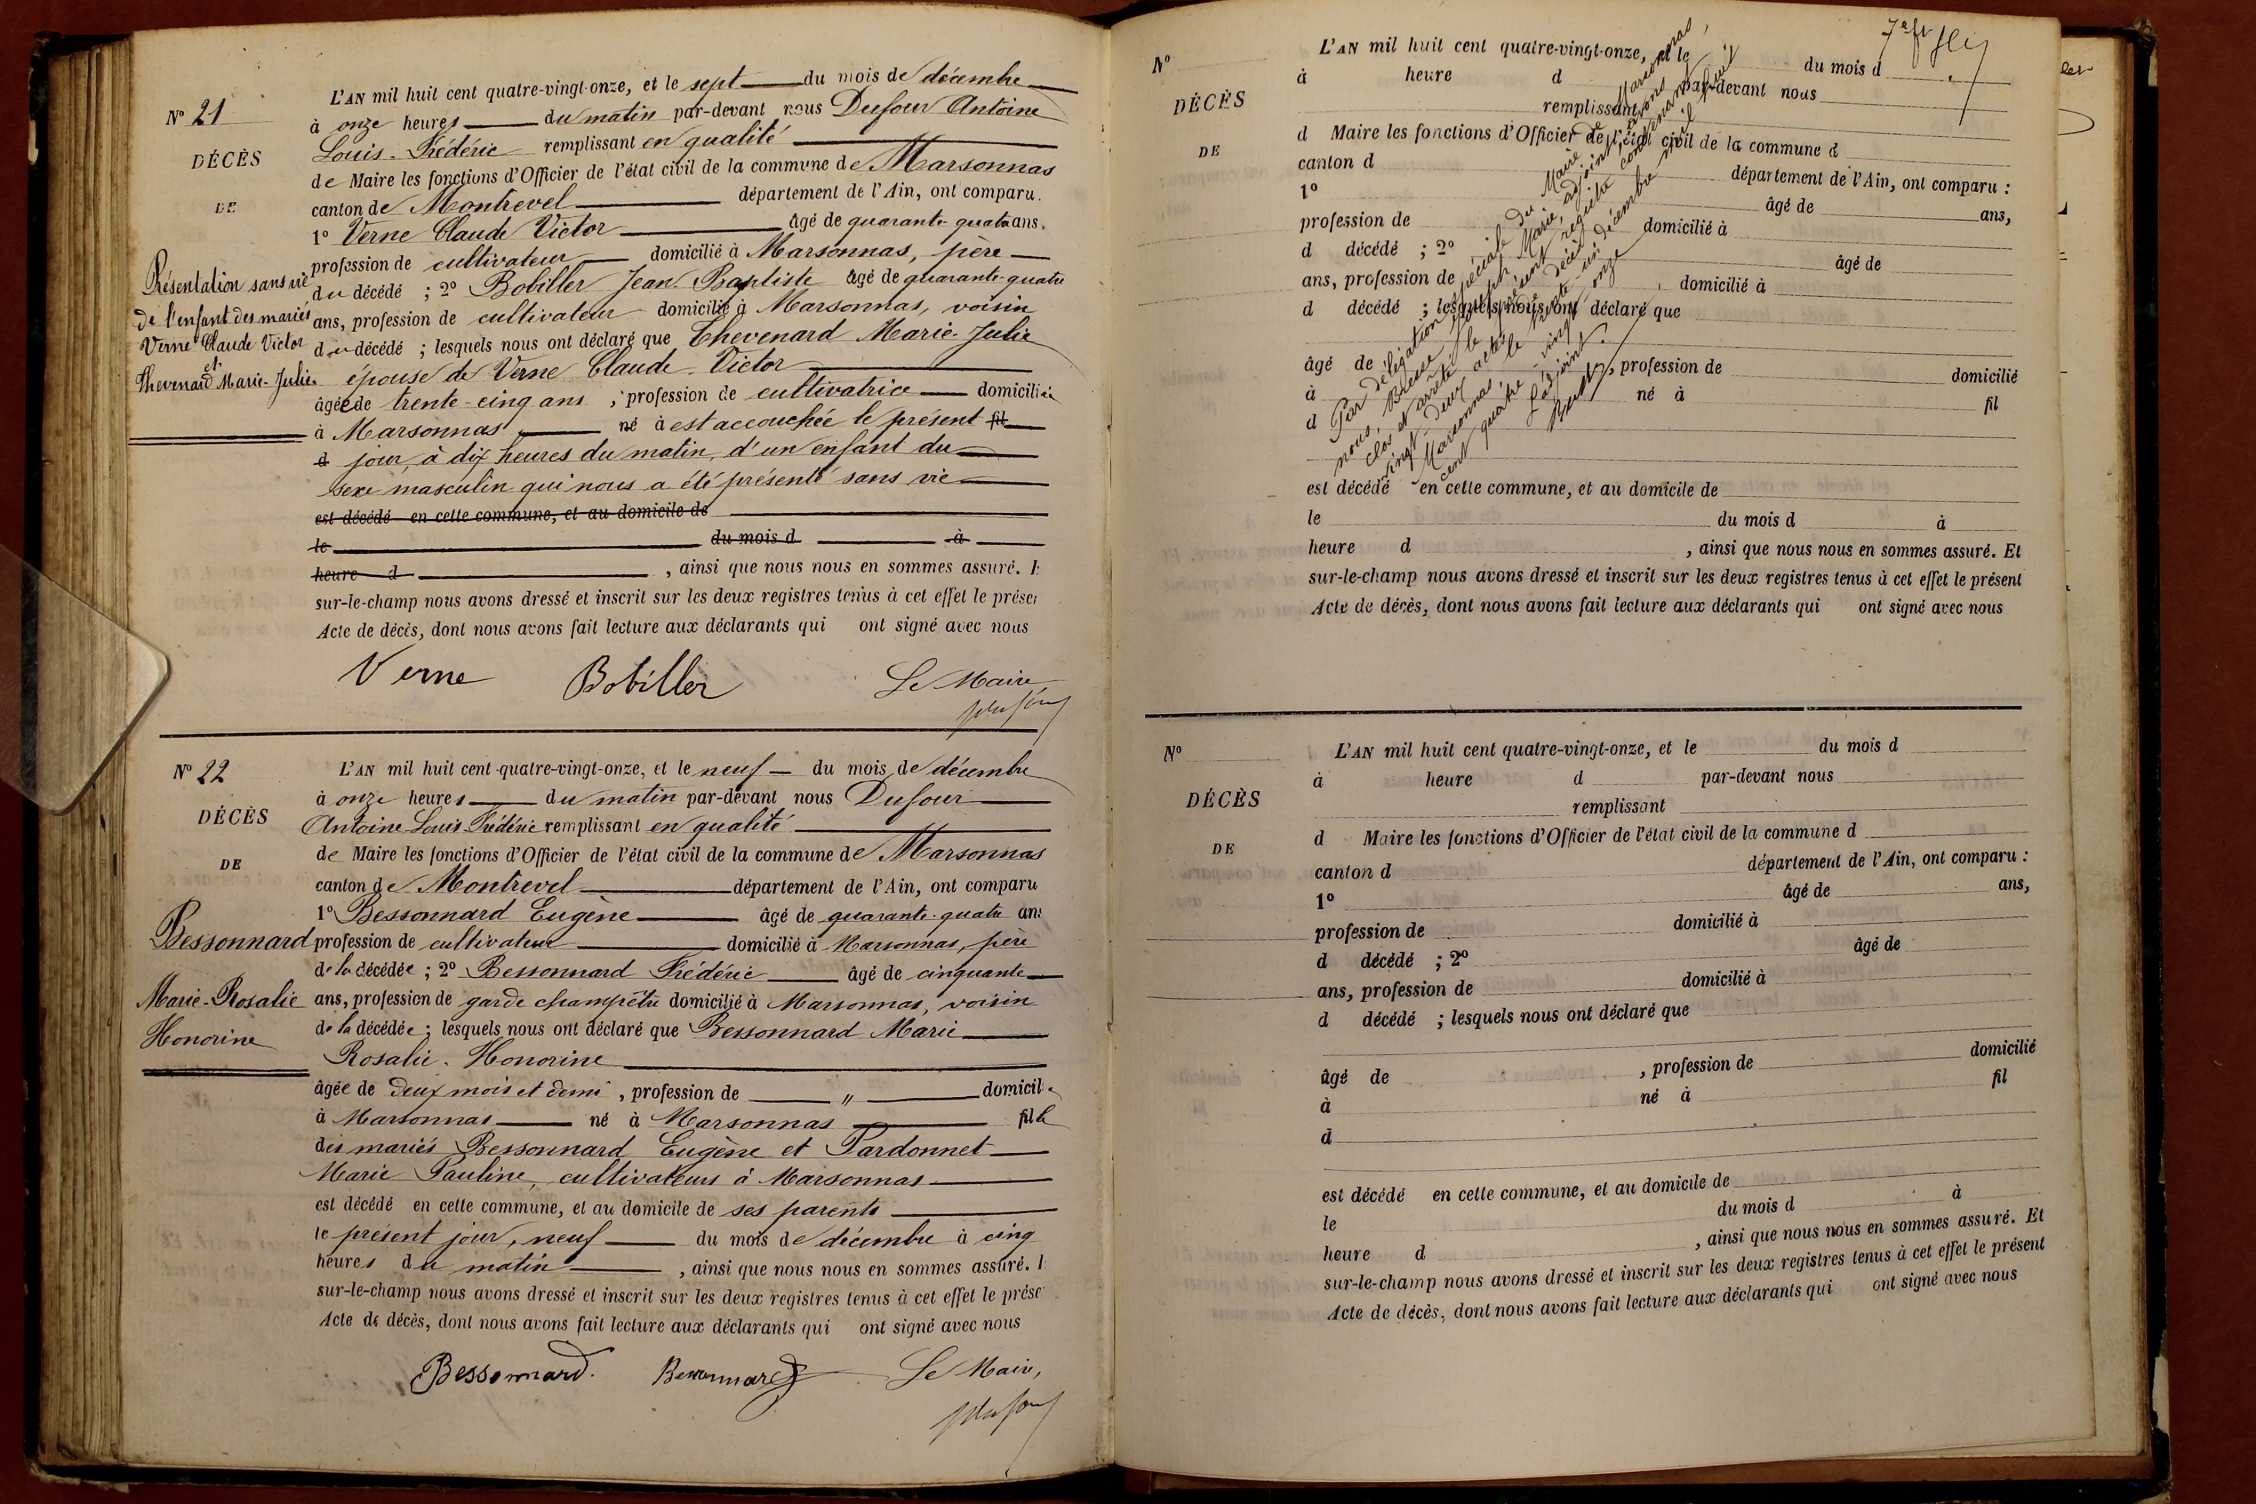 N° 21
DÉCÈS
DE
Présentation sans vie
de l'enfant des mariés
Verne Claude Victor
et
Thevenard Marie-Julie
L'AN mil huit cent quatre-vingt-onze, et le sept du mois de décembre
à onze heures du matin par-devant nous Dufour Antoine
Louis-Frédéric remplissant en qualité
de Maire les fonctions d'Officier de l'état civil de la commune de Marsonnas
canton de Montrevel département de l'Ain, ont comparu.
1° Verne Claude Victor âgé de quarante-quatre ans.
profession de cultivateur domicilié à Marsonnas, père
du décédé ; 2° Bobiller Jean Baptiste âgé de quarante-quatre
ans, profession de cultivateur domicilié à Marsonnas, voisin
du décédé ; lesquels nous ont déclaré que Thevenard Marie-Julie
épouse de Verne Claude-Victor
âgée de trente-cinq ans, profession de cultivatrice domiciliée
à Marsonnas né à est accouchée le présent fil
d jour, à dix heures du matin, d'un enfant du
sexe masculin qui nous a été présenté sans vie
est décédé en cette commune, et au domicile de
le du mois d à
heure d , ainsi que nous nous en sommes assuré. E
sur-le-champ nous avons dressé et inscrit sur les deux registres tenus à cet effet le prése
Acte de décès, dont nous avons fait lecture aux déclarants qui ont signé avec nous
Verne Bobiller Le Maire,
Dufour
N° 22
DÉCÈS
DE
Bessonnard
Marie-Rosalie
Honorine
L'AN mil huit cent quatre-vingt-onze, et le neuf du mois de décembre
à onze heures du matin par-devant nous Dufour
Antoine-Louis-Frédéric remplissant en qualité
de Maire les fonctions d'Officier de l'état civil de la commune de Marsonnas
canton de Montrevel département de l'Ain, ont comparu
1° Bessonnard Eugène âgé de quarante-quatre ans
profession de cultivateur domicilié à Marsonnas, père
de la décédée ; 2° Bessonnard Frédéric âgé de cinquante
ans, profession de garde champêtre domicilié à Marsonnas, voisin
de la décédée ; lesquels nous ont déclaré que Bessonnard Marie
Rosalie-Honorine
âgée de deux mois et demi, profession de " domicil
à Marsonnas né à Marsonnas fille
des mariés Bessonnard Eugène et Pardonnet
Marie Pauline, cultivateurs à Marsonnas
est décédé en cette commune, et au domicile de ses parents
le présent jour, neuf du mois de décembre à cinq
heures du matin , ainsi que nous nous en sommes assuré. E
sur-le-champ nous avons dressé et inscrit sur les deux registres tenus à cet effet le prése
Acte de décès, dont nous avons fait lecture aux déclarants qui ont signé avec nous
Bessonnard. Bessonnard Le Maire,
Dufour
N°
DÉCÈS
DE
L'AN mil huit cent quatre-vingt-onze, et le du mois d
à heure d par-devant nous
remplissant
d Maire les fonctions d'Officier de l'état civil de la commune d
canton d département de l'Ain, ont comparu :
1° âgé de ans,
profession de domicilié à
d décédé ; 2° âgé de
ans, profession de domicilié à
d décédé ; lesquels nous ont déclaré que
âgé de , profession de domicilié
à né à fil
d
est décédé en cette commune, et au domicile de
le du mois d à
heure d , ainsi que nous nous en sommes assuré. Et
sur-le-champ nous avons dressé et inscrit sur les deux registres tenus à cet effet le présent
Acte de décès, dont nous avons fait lecture aux déclarants qui ont signé avec nous
Par délégation spéciale du Maire de Marsonnas,
nous, Joseph Marie, adjoint, avons
clos et arrêté le présent registre contenant
vingt-deux actes de décès
Marsonnas, le trente un décembre mil huit
cent quatre-vingt onze
L'adjoint.
N°
DÉCÈS
DE
L'AN mil huit cent quatre-vingt-onze, et le du mois d
à heure d par-devant nous
remplissant
d Maire les fonctions d'Officier de l'état civil de la commune d
canton d département de l'Ain, ont comparu :
1° âgé de ans,
profession de domicilié à
d décédé ; 2° âgé de
ans, profession de domicilié à
d décédé ; lesquels nous ont déclaré que
âgé de , profession de domicilié
à né à fil
d
est décédé en cette commune, et au domicile de
le du mois d à
heure d , ainsi que nous nous en sommes assuré. Et
sur-le-champ nous avons dressé et inscrit sur les deux registres tenus à cet effet le présent
Acte de décès, dont nous avons fait lecture aux déclarants qui ont signé avec nous